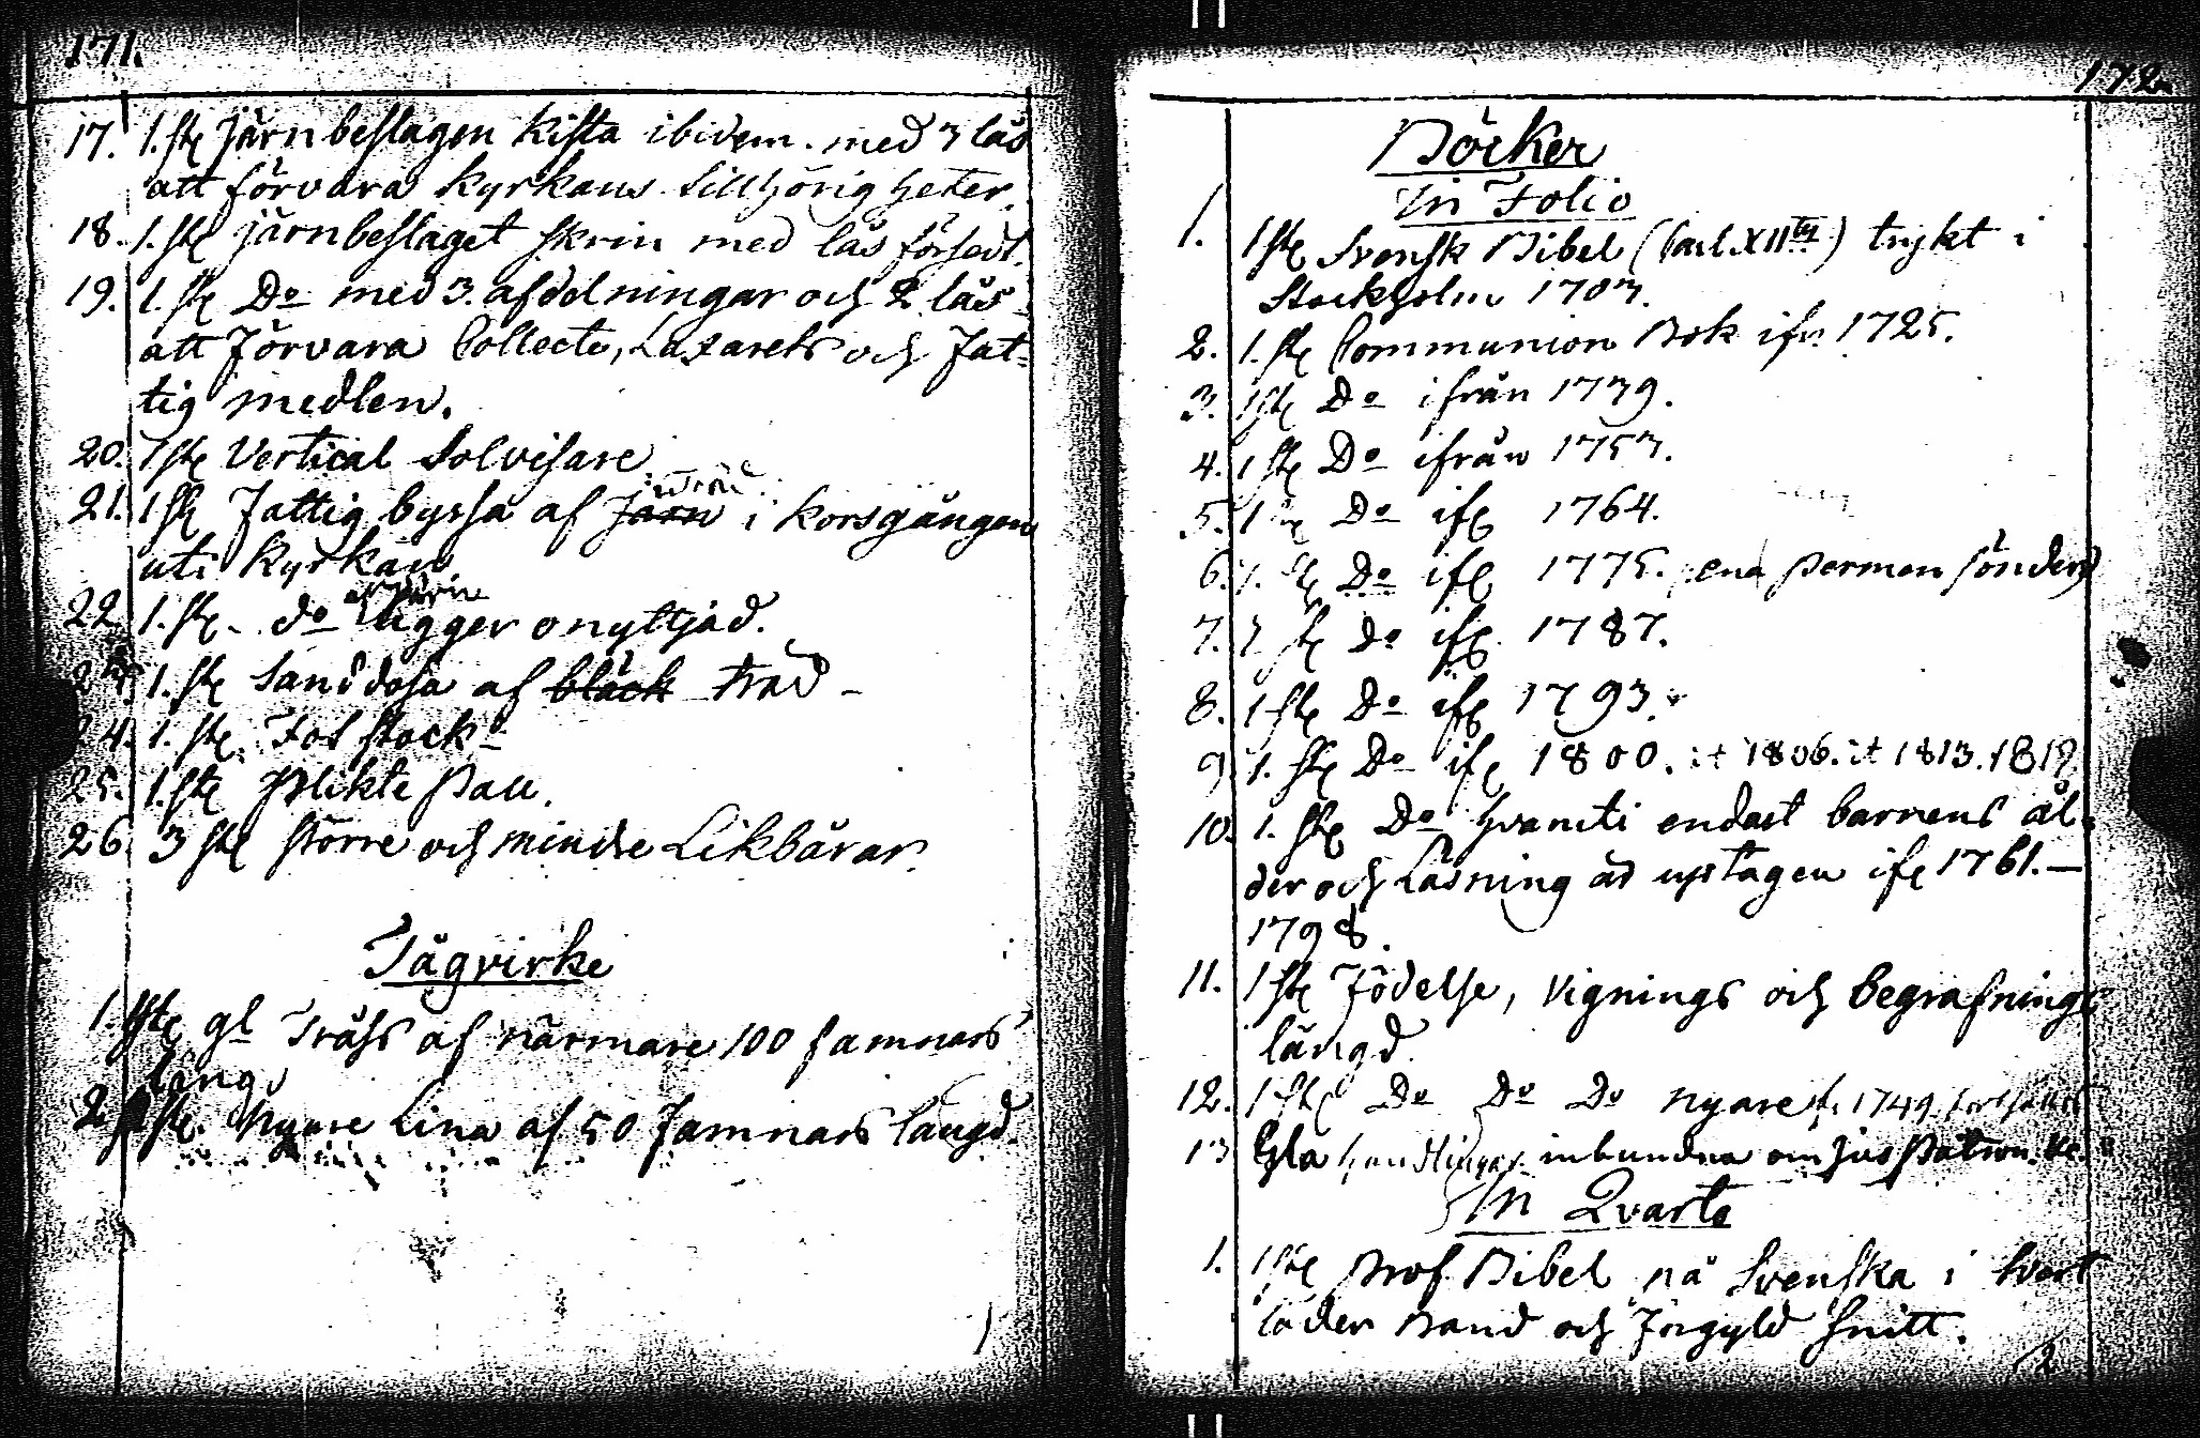 171.
17. 1. st järnbeslagen Kista ibidem. med 3 lås
att förvara Kyrkans tillhörigheter.
18. 1. st järnbeslaget skrin med lås försedt.
19. 1. st Do med 3. afdelningar och 2 lås
att förvara Collecte, Lazarets och Fat-
tig medlen.
20. 1 st Vertical Solvisare
21. 1 st Fattig byssa af Järn i Korsgången
uti Kyrkan
af Järn
22 1. st. do ligger onyttjad.
23. 1. st Sanddosa af bläck träd -
24. 1. st. Fot stock
25. 1. st Plikte Pall.
26. 3 st större och mindre Likbårar.
Tågvirke
1. 1 st gl Tråss af närmare 100 famnars
läng
2. 1 st. Nyare Lina af 50 famnars längd.
172.
Böcker
In Folio
1. 1 st Svensk Bibel (Carl XIIte) trykt i
Stockholm 1703.
2. 1. st Communion Bok ifr. 1725.
3. 1 st Do ifrån 1739.
4. 1 st Do ifrån 1753.
5. 1 st Do ifr 1764.
6. 1. st Do ifr 1775. ena permen sönder
7. 1 st Do ifr 1787.
8. 1 st Do ifr 1793.
9. 1. st Do ifr 1800. it 1806. it 1813. 181
10. 1. st Do hvaruti endast barnens ål-
der och Läsning är uptagen ifr 1761.—
1798.
11. 1 st Födelse, Vignings och begrafnings
längd.
12. 1 st Do Do Do nyare fr 1749.
13 Gla handlingar inbundna om jus Patron. &c.
In Qvarto
1. 1 st Prof Bibel på Svenska i Svart
läder Band och Förgyld Snitt.
2